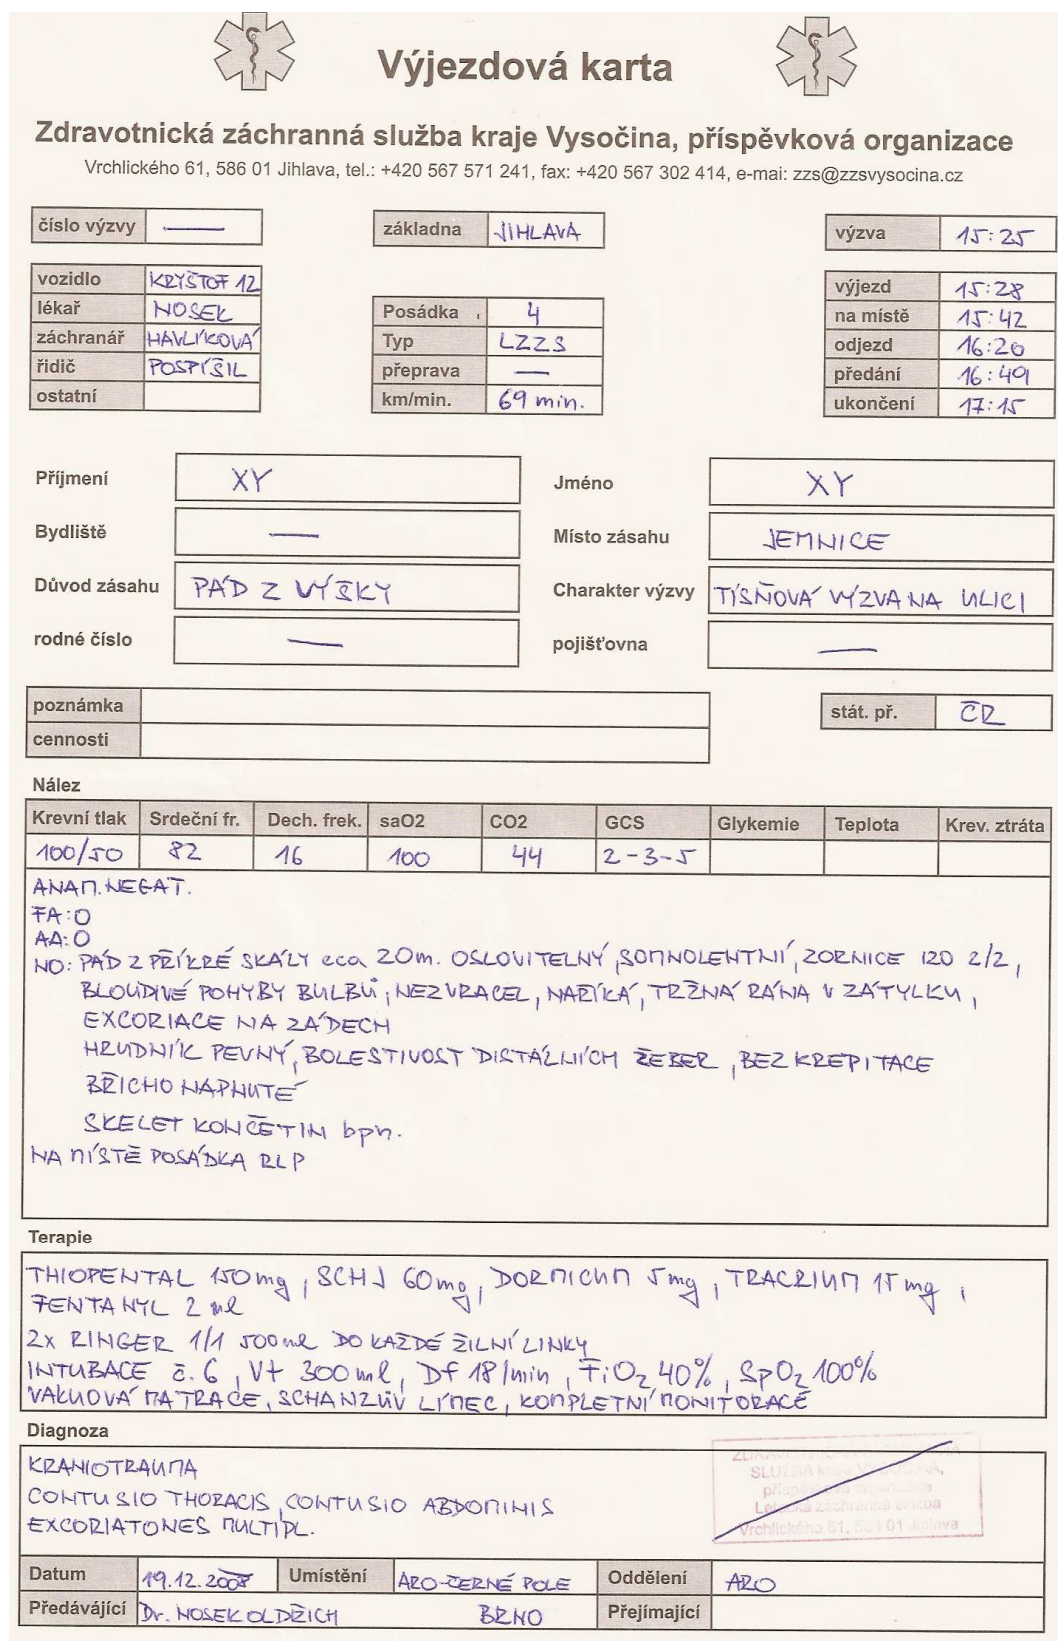 Výjezdová karta
Zdravotnická záchranná služba kraje Vysočina, příspěvková organizace
Vrchlického 61, 586 01 Jihlava, tel.: +420 567 571 241, fax: +420 567 302 414, e-mai: zzs@zzsvysocina.cz
číslo výzvy —
základna JIHLAVA
výzva 15:25
vozidlo KRYŠTOF 12
lékař NOSEK
záchranář HAVLÍKOVÁ
řidič POSPÍŠIL
ostatní
Posádka 4
Typ LZZS
přeprava —
km/min. 69 min.
výjezd 15:28
na místě 15:42
odjezd 16:20
předání 16:49
ukončení 17:15
Příjmení XY Jméno XY
Bydliště — Místo zásahu JEMNICE
Důvod zásahu PÁD Z VÝŠKY Charakter výzvy TÍSŇOVÁ VÝZVA NA ULICI
rodné číslo — pojišťovna —
poznámka
cennosti
stát. př. ČR
Nález
Krevní tlak Srdeční fr. Dech. frek. saO2 CO2 GCS Glykemie Teplota Krev. ztráta
100/50 82 16 100 44 2-3-5
ANAM. NEGAT.
FA: 0
AA: 0
NO: PÁD Z PŘÍKRÉ SKÁLY cca 20m. OSLOVITELNÝ, SOMNOLENTNÍ, ZORNICE IZO 2/2,
BLOUDIVÉ POHYBY BULBŮ, NEZVRACEL, NAŘÍKÁ, TRŽNÁ RÁNA V ZÁTYLKU,
EXCORIACE NA ZÁDECH
HRUDNÍK PEVNÝ, BOLESTIVOST DISTÁLNÍCH ŽEBER, BEZ KREPITACE
BŘICHO NAPNUTÉ
SKELET KONČETIN bpn.
NA MÍSTĚ POSÁDKA RLP
Terapie
THIOPENTAL 150mg, SCHJ 60mg, DORMICUM 5mg, TRACRIUM 15mg,
FENTANYL 2 ml
2x RINGER 1/1 500ml DO KAŽDÉ ŽILNÍ LINKY
INTUBACE č. 6, Vt 300ml, Df 18/min, FiO2 40%, SpO2 100%
VAKUOVÁ MATRACE, SCHANZŮV LÍMEC, KOMPLETNÍ MONITORACE
Diagnoza
KRANIOTRAUMA
CONTUSIO THORACIS, CONTUSIO ABDOMINIS
EXCORIATONES MULTIPL.
SLUŽBA kraje VYSOČINA,
příspěvková organizace
Letecká záchranná služba
Vrchlického 61, 01 Jihlava
Datum 19.12.2008 Umístění ARO-ČERNÉ POLE Oddělení ARO
Předávající Dr. NOSEK OLDŘICH BRNO Přejímající